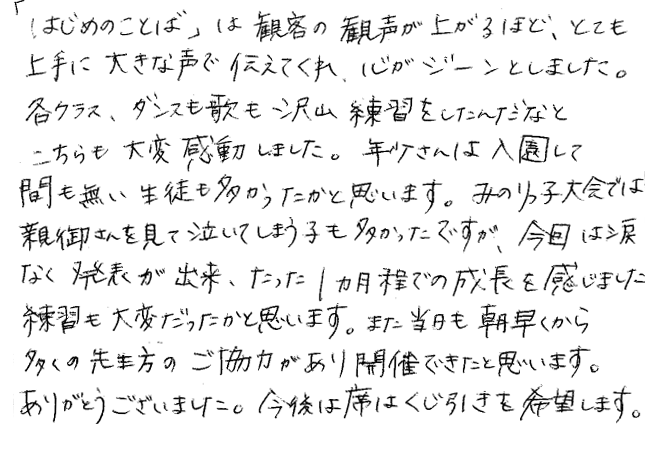 「はじめのことば」は観客の観声が上がるほど、とても
上手に大きな声で伝えてくれ、心がジーンとしました。
各クラス、ダンスも歌も沢山練習をしたんだなと
こちらも大変感動しました。年少さんは入園して
間も無い生徒も多かったかと思います。みのりっ子大会では
親御さんを見て泣いてしまう子も多かったですが、今回は涙
なく発表が出来、たった1カ月程での成長を感じました
練習も大変だったかと思います。また当日も朝早くから
多くの先生方のご協力があり開催できたと思います。
ありがとうございました。今後は席はくじ引きを希望します。